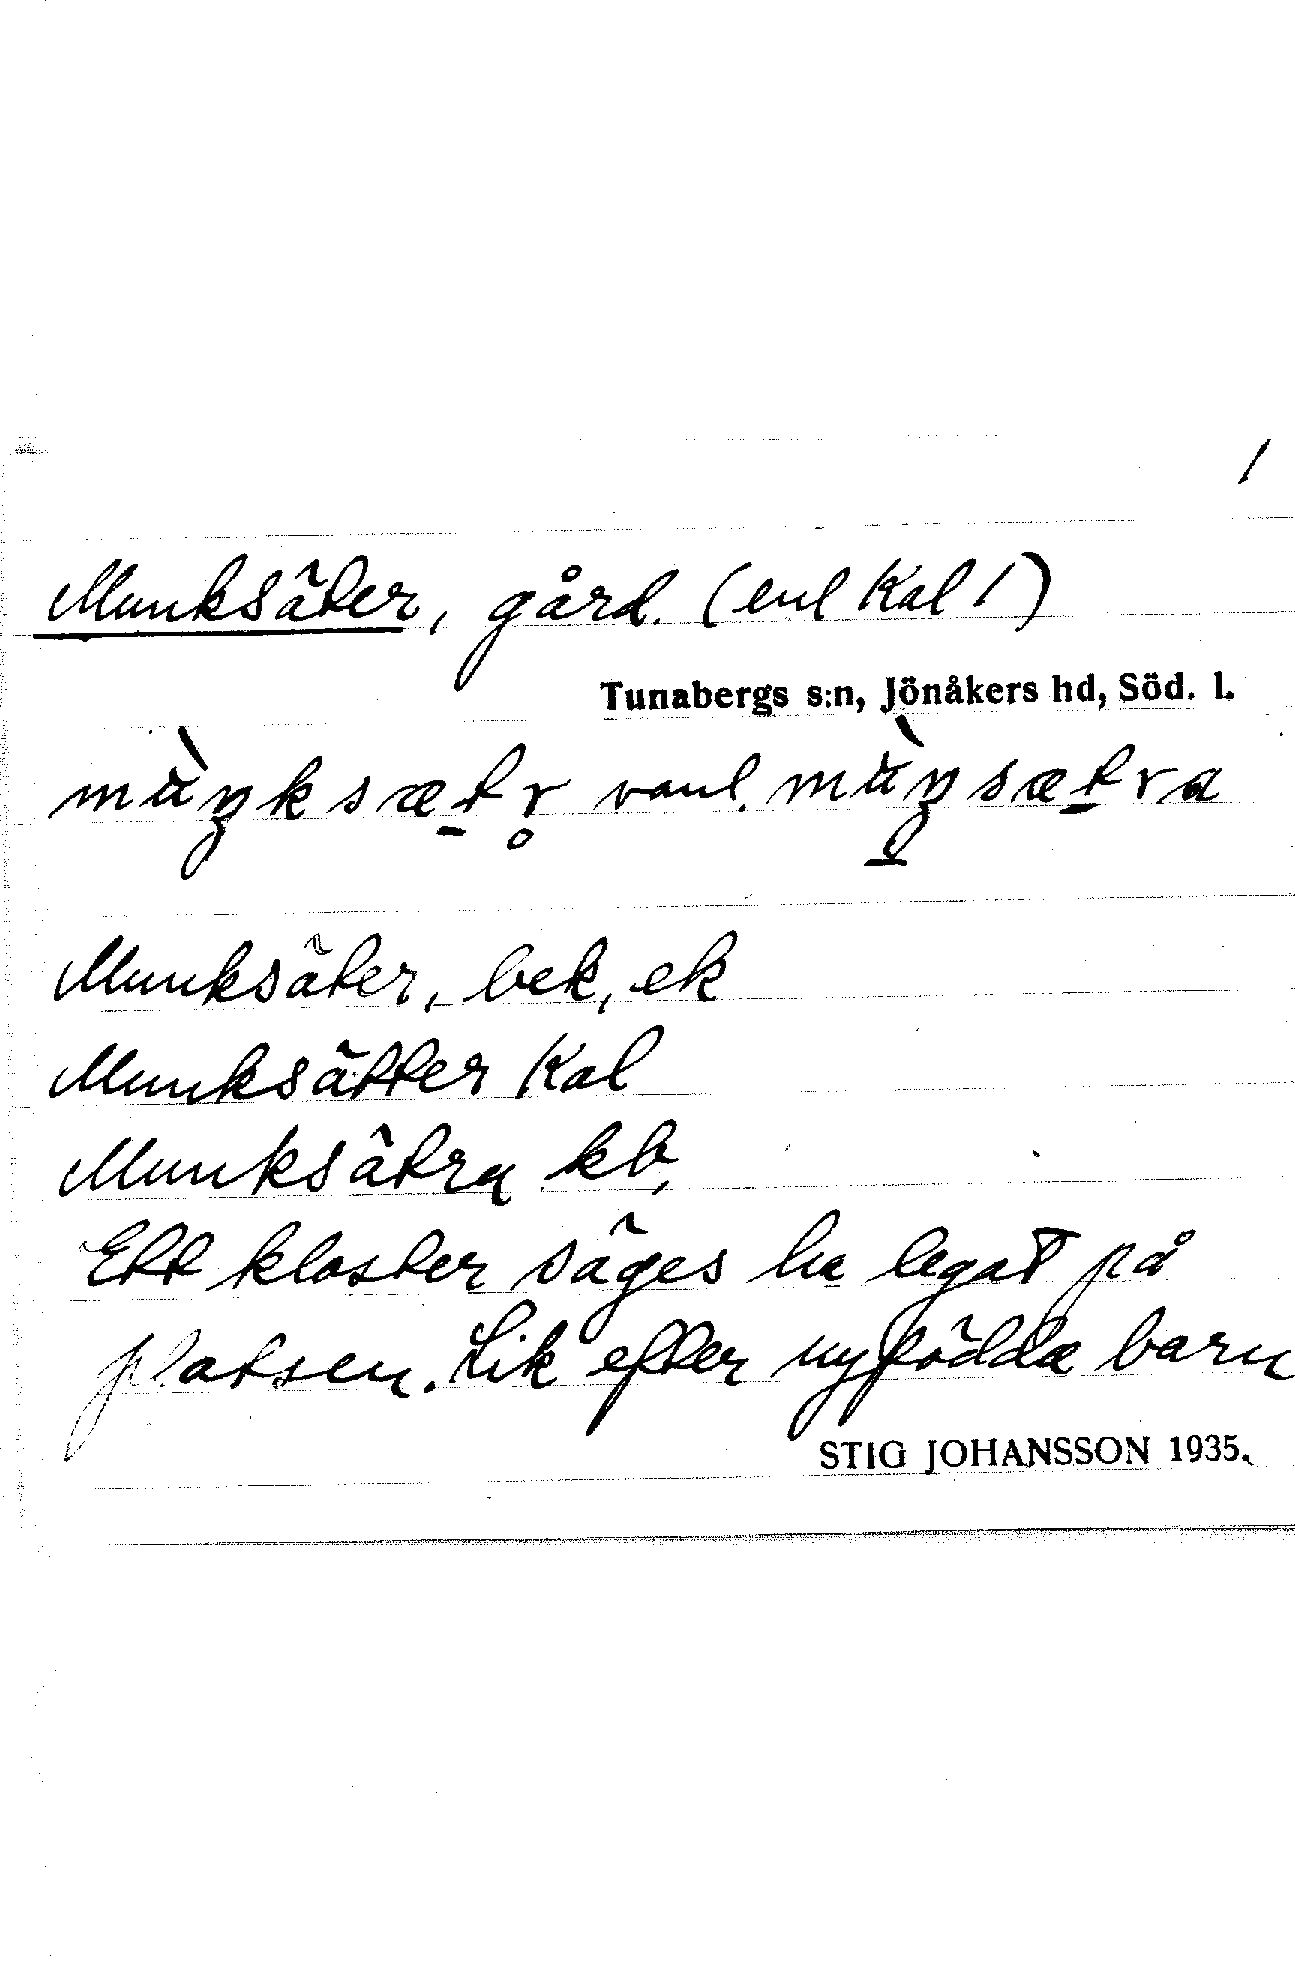 1
Munksäter, gård. (enl Kal 1)
Tunabergs s:n, Jönåkers hd, Söd. l.
mùŋksæt̠r̥ vanl. mùŋ̠sæt̠ra
Munksäter, bek, ek
Munksätter Kal
Munksätra kb,
Ett kloster säges ha legat på
platsen. Lik efter nyfödda barn
STIG JOHANSSON 1935.